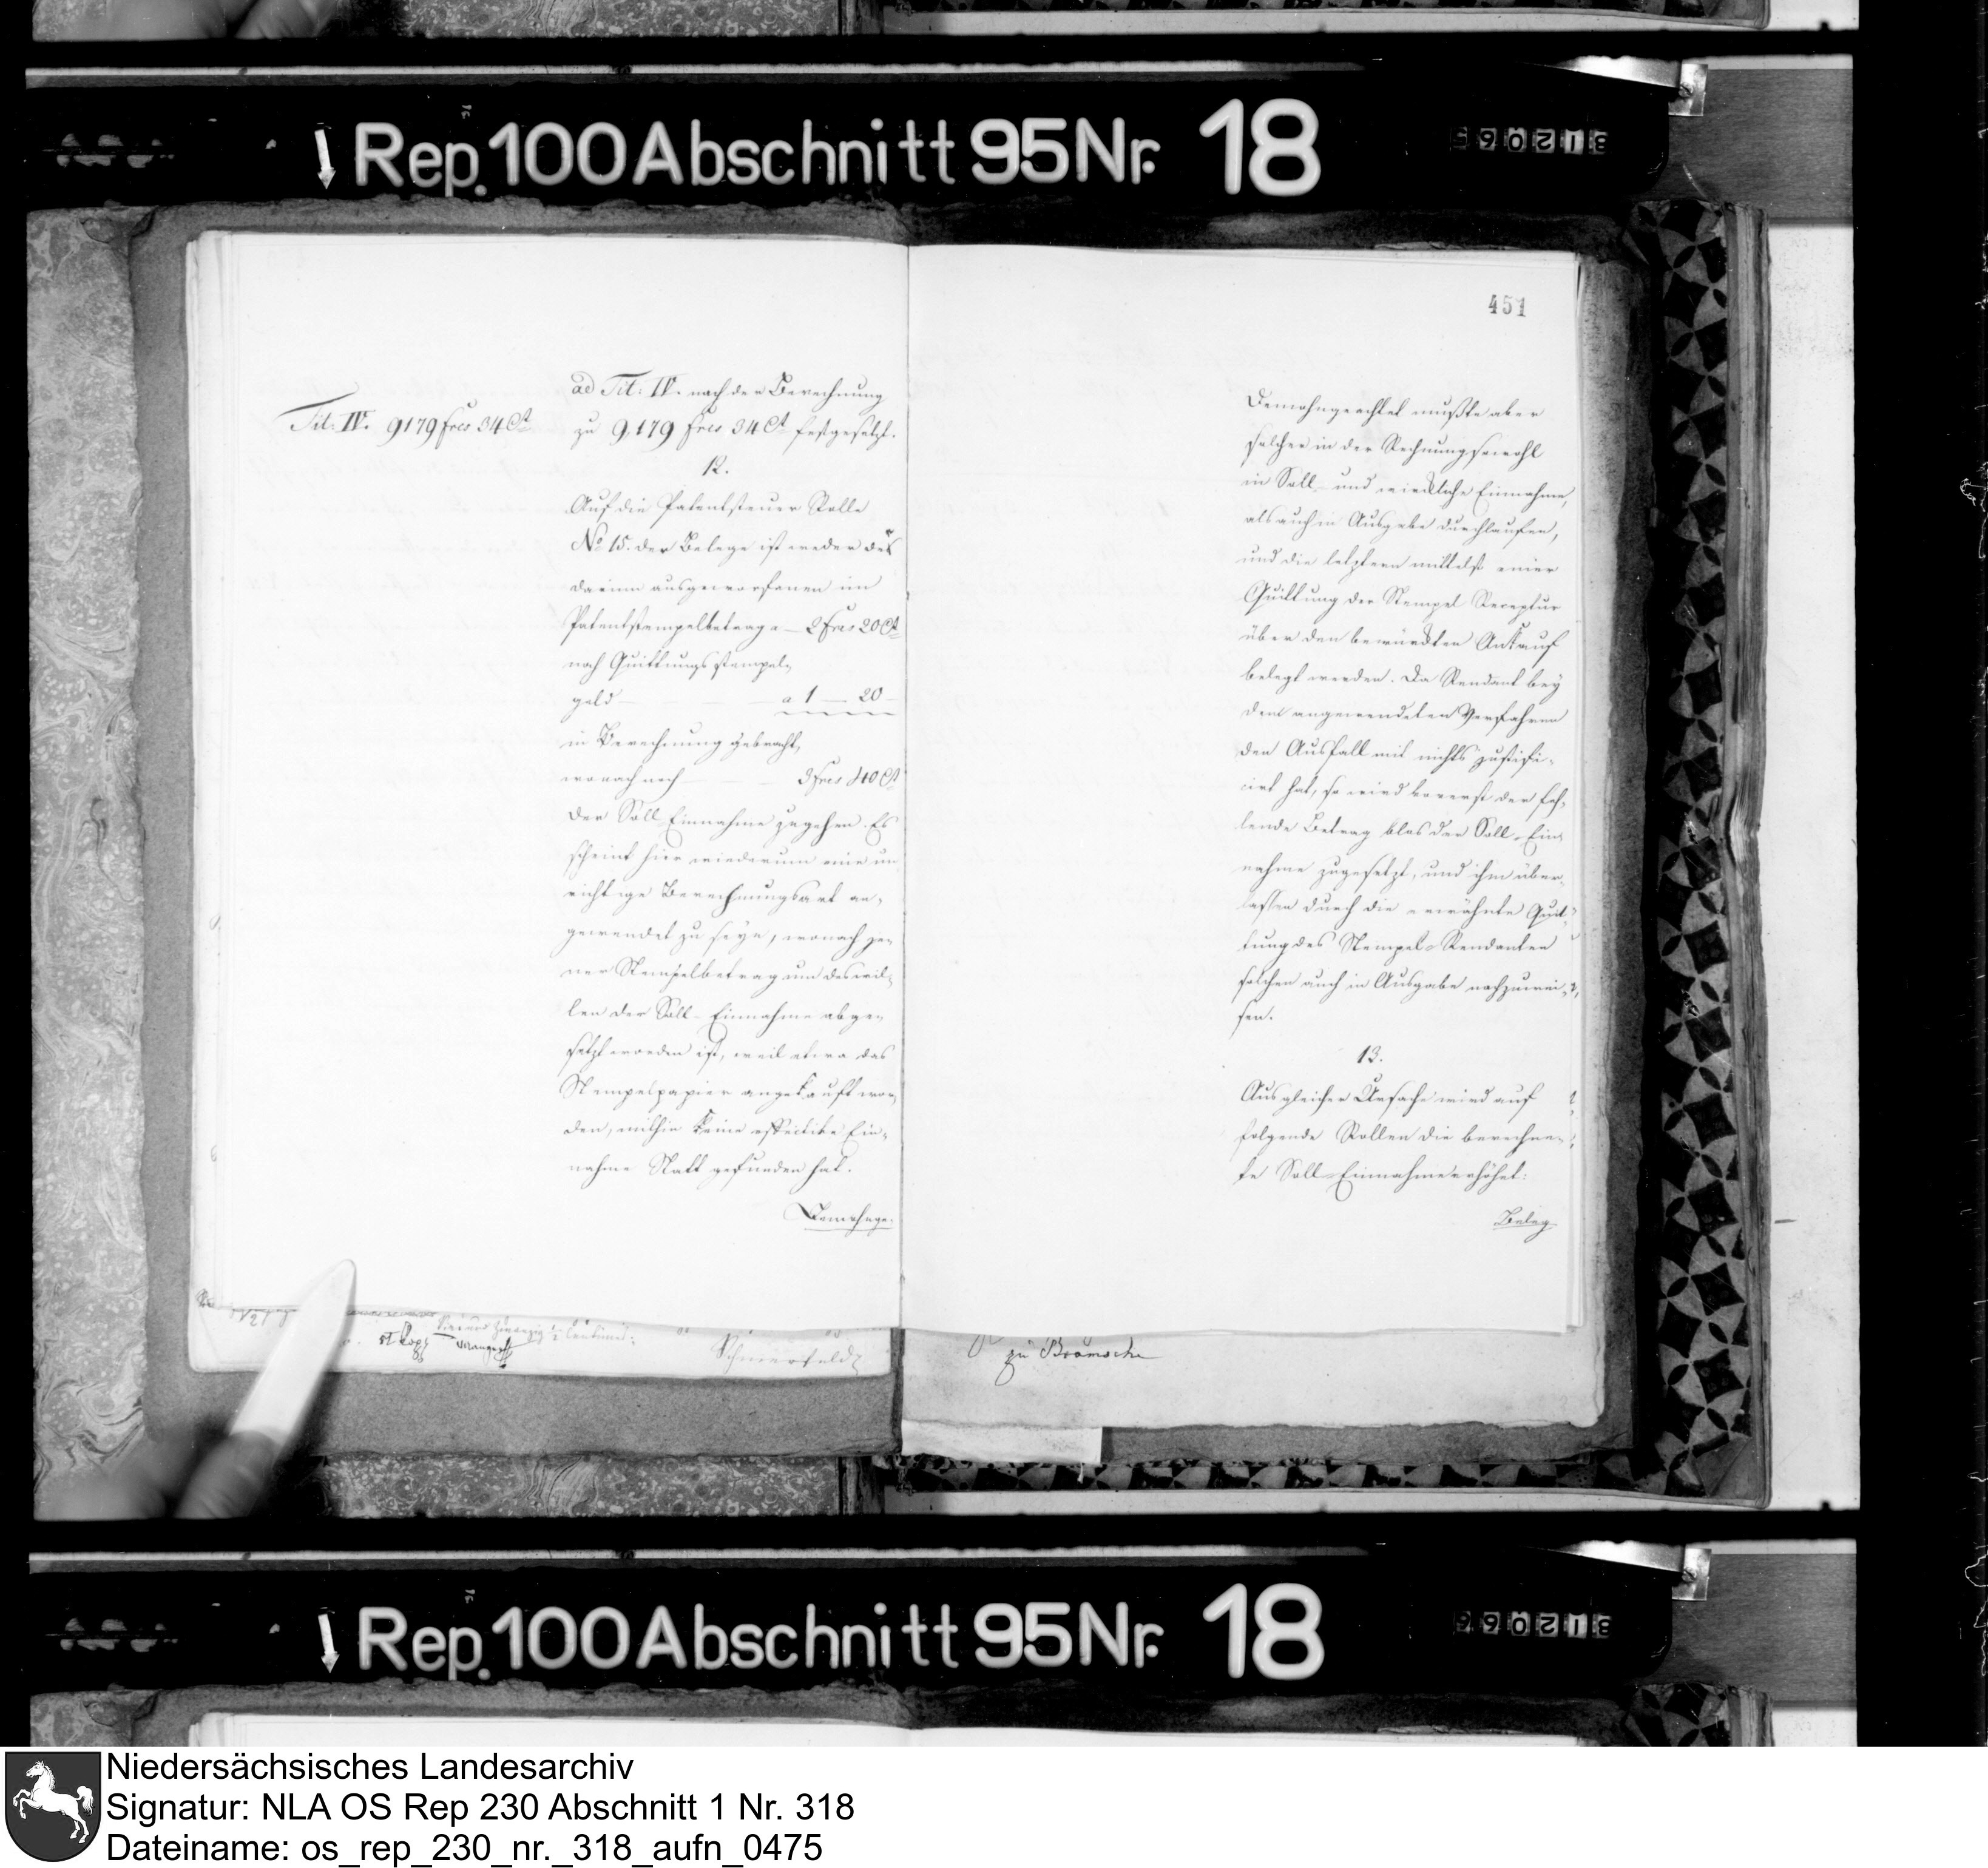 Rep. 100 Abschnitt 95 Nr. 18
312065
ad Tit: IV. nach der Berechnung
Tit: IV. 9179 frcs 34 Ct
zu 9,179 frcs 34 Ct festgesetzt.
12.
Auf die Patentsteuer Rolle
No 15. der Belege ist weder der
darinn ausgeworfenen im
Patentstempelbetrag a — 2 frcs 20 Ct
noch Quittungsstempel,
geld — a 1 — 20 —
in Berechnung gebracht,
wonach noch — 3 frcs 40 Ct
der Soll Einnahme zugehen. Es
scheint hier wiederum eine un
richtige Berechnungsart an,
gewendet zu seyn, wonach je,
ner Stempelbetrag um deswil,
len der Soll-Einnahme abge,
setzt worden ist, weil etwa das
Stempelpapier angekauft wor,
den, mithin keine effective Ein,
nahme Statt gefunden hat.
Demohnge,
451
Demohngeachtet mußte aber
solcher in der Rechnung sowohl
in Soll- und wirckliche Einnahme,
als auch in Ausgabe durchlaufen,
und die letztern mittelst einer
Quittung der Stempel Receptur
über den bewürckten Ankauf
belegt werden. Da Rendant bey
dem angewendeten Verfahren
den Ausfall mit nichts justifi,
cirt hat, so wird vorerst der feh,
lende Betrag blos der Soll-Ein,
nahme zugesetzt, und ihm über,
lassen durch die erwähnte Quit,
tung des Stempel-Rendanten
solchen auch in Ausgabe nachzuwei,
sen.
13.
Aus gleicher Ursache wird auf
folgende Rollen die berechne,
te Soll-Einnahme erhöhet:
Beleg
zu Bramsche
Rep. 100 Abschnitt 95 Nr. 18
312066
Niedersächsisches Landesarchiv
Signatur: NLA OS Rep 230 Abschnitt 1 Nr. 318
Dateiname: os_rep_230_nr._318_aufn_0475